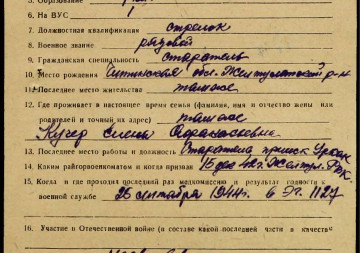 6. На ВУС 1
7. Должностная квалификация стрелок
8. Военное звание рядовой
9. Гражданская специальность старатель
10. Место рождения Читинская обл. р-н
11. Последнее место жительства там же
12. Где проживает в настоящее время семья (фамилия, имя и отчество жены или
родителей и точный их адрес) там же
Кучер Афанасьевна
13. Последнее место работы и должность Старатель прииск Урюм
14. Каким райгорвоенкоматом и когда призван РВК.
15. Когда и где проходил последний раз медкомиссию и результат годности к
военной службе 26 сентября 1944 г. в ЭГ. 1127
16. Участие в Отечественной войне (в составе какой последней части в качестве